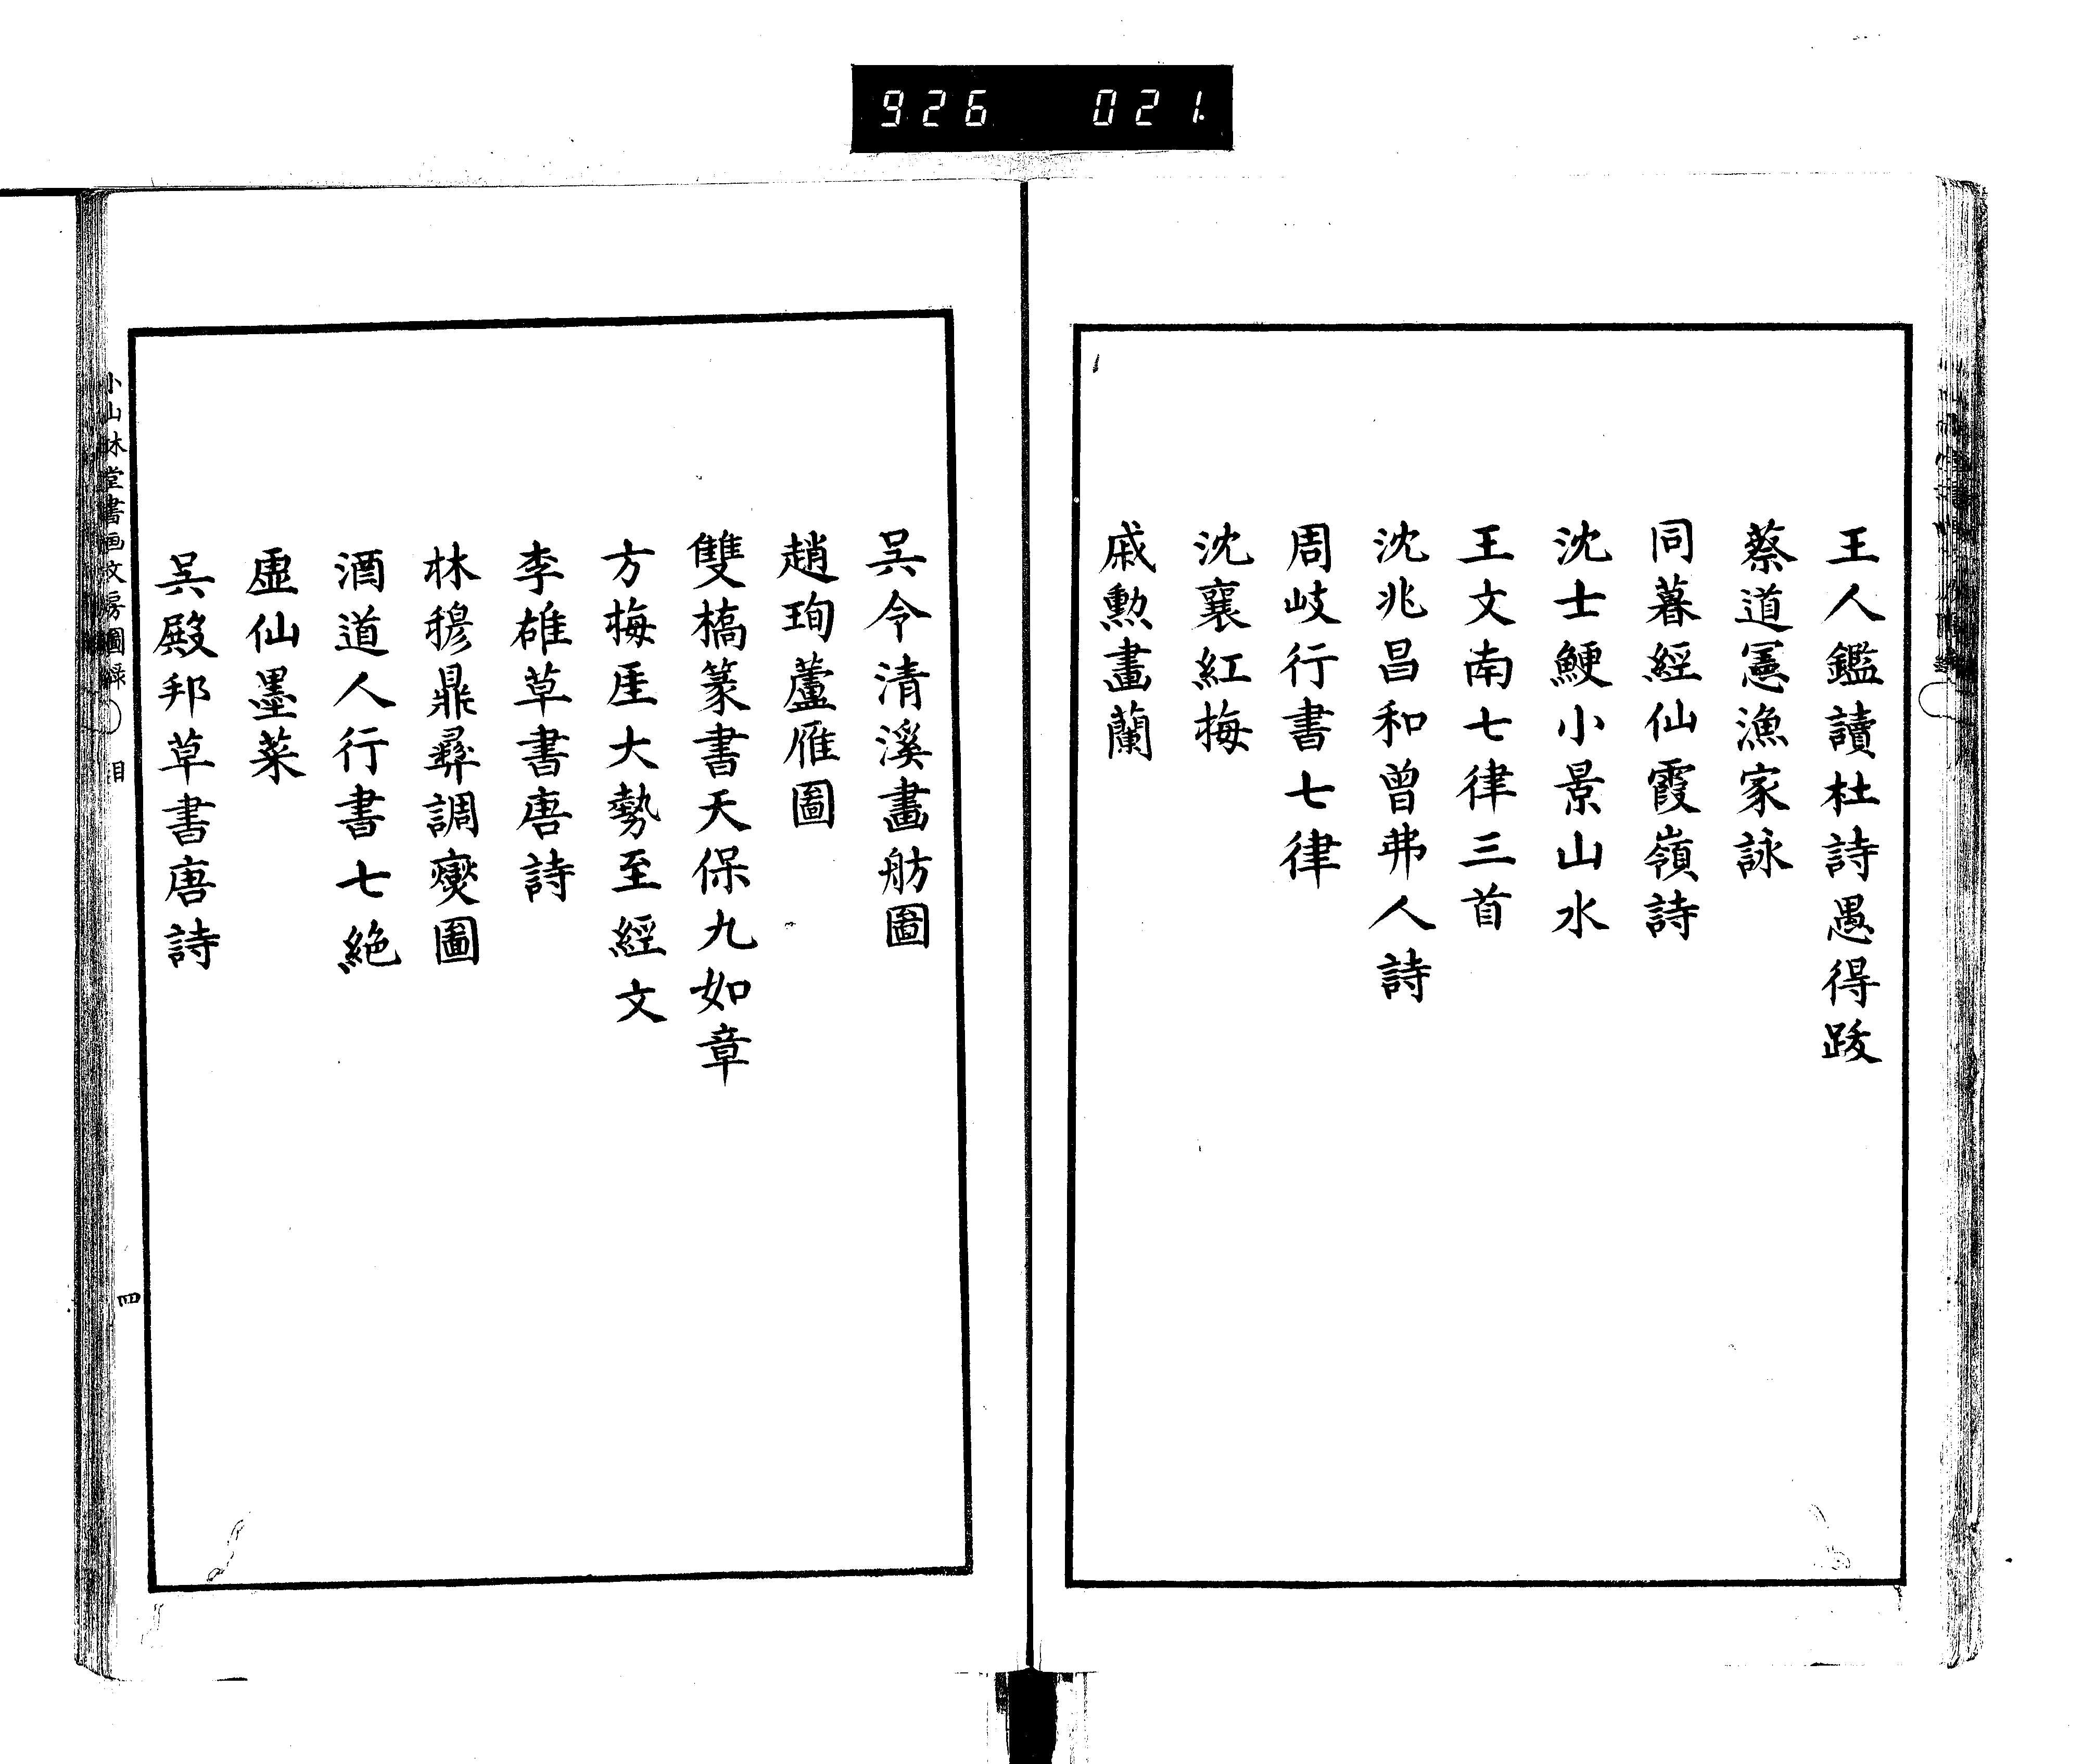 926 021
王人鑑讀杜詩愚得跋
蔡道憲漁家詠
同暮經仙霞嶺詩
沈士鯁小景山水
王文南七律三首
沈兆昌和曾弗人詩
周岐行書七律
沈襄紅梅
戚勲畫蘭
吴令清溪畫舫圖
趙珣蘆雁圖
雙橋篆書天保九如章
方梅厓大勢至經文
李雄草書唐詩
林穆鼎彝調爕圖
酒道人行書七絶
虛仙墨菜
吴殿邦草書唐詩
小山林堂書画文房圖録
四